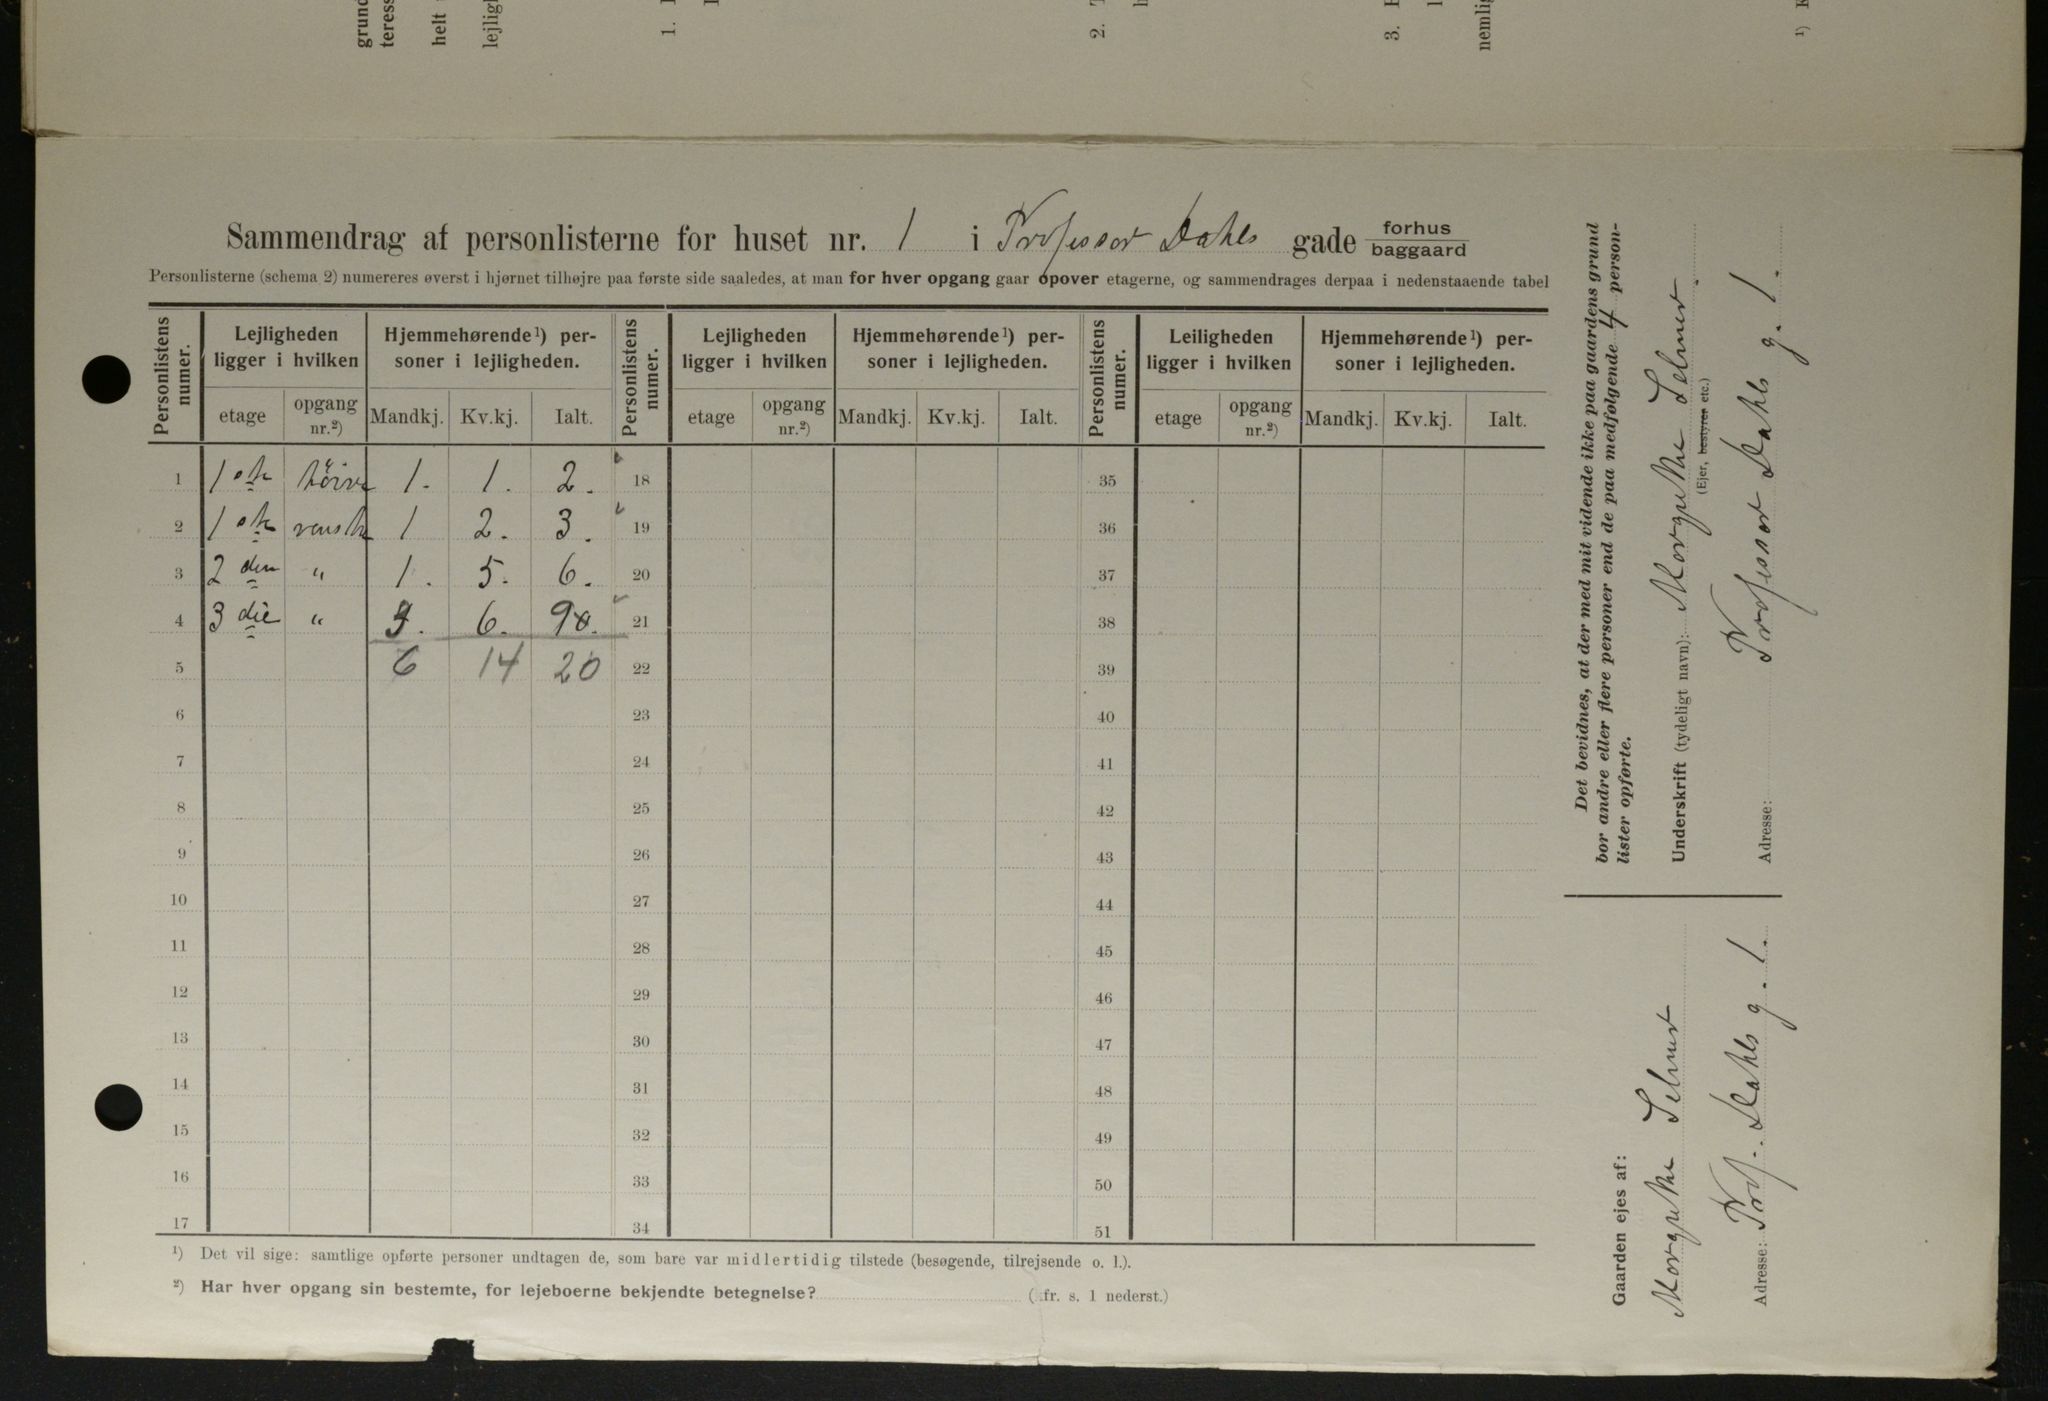 grund
teress
helt
lejligh
1.
2.
3.
nemlig
¹)
Sammendrag af personlisterne for huset nr. 1 i Professor Dahls gade forhus
baggaard
Personlisterne (schema 2) numereres øverst i hjørnet tilhøjre paa første side saaledes, at man for hver opgang gaar opover etagerne, og sammendrages derpaa i nedenstaaende tabel
Personlistens numer. Lejligheden ligger i hvilken Hjemmehørende¹) per-soner i lejligheden. Personlistens numer. Lejligheden ligger i hvilken Hjemmehørende¹) per-soner i lejligheden. Personlistens numer. Leiligheden ligger i hvilken Hjemmehørende¹) per-soner i lejligheden.
etage opgang nr.²) Mandkj. Kv.kj. Ialt. etage opgang nr.²) Mandkj. Kv.kj. Ialt. etage opgang nr.²) Mandkj. Kv.kj. Ialt.
1 1ste höire 1. 1. 2. 18 35
2 1ste venstre 1 2. 3. 19 36
3 2den " 1. 5. 6. 20 37
4 3die " 3. 6. 9. 21 38
5 6 14 20 22 39
6 23 40
7 24 41
8 25 42
9 26 43
10 27 44
11 28 45
12 29 46
13 30 47
14 31 48
15 32 49
16 33 50
17 34 51
¹) Det vil sige: samtlige opførte personer undtagen de, som bare var midlertidig tilstede (besøgende, tilrejsende o. l.).
²) Har hver opgang sin bestemte, for lejeboerne bekjendte betegnelse? (fr. s. 1 nederst.)
Det bevidnes, at der med mit vidende ikke paa gaardens grund
bor andre eller flere personer end de paa medfølgende 4 person-
lister opførte.
Underskrift (tydeligt navn): Selmer
(Ejer, bestyrer etc.)
Adresse: Professor Dahls g. 1.
Gaarden ejes af:
Selmer
Adresse: Prof. Dahls g. 1.